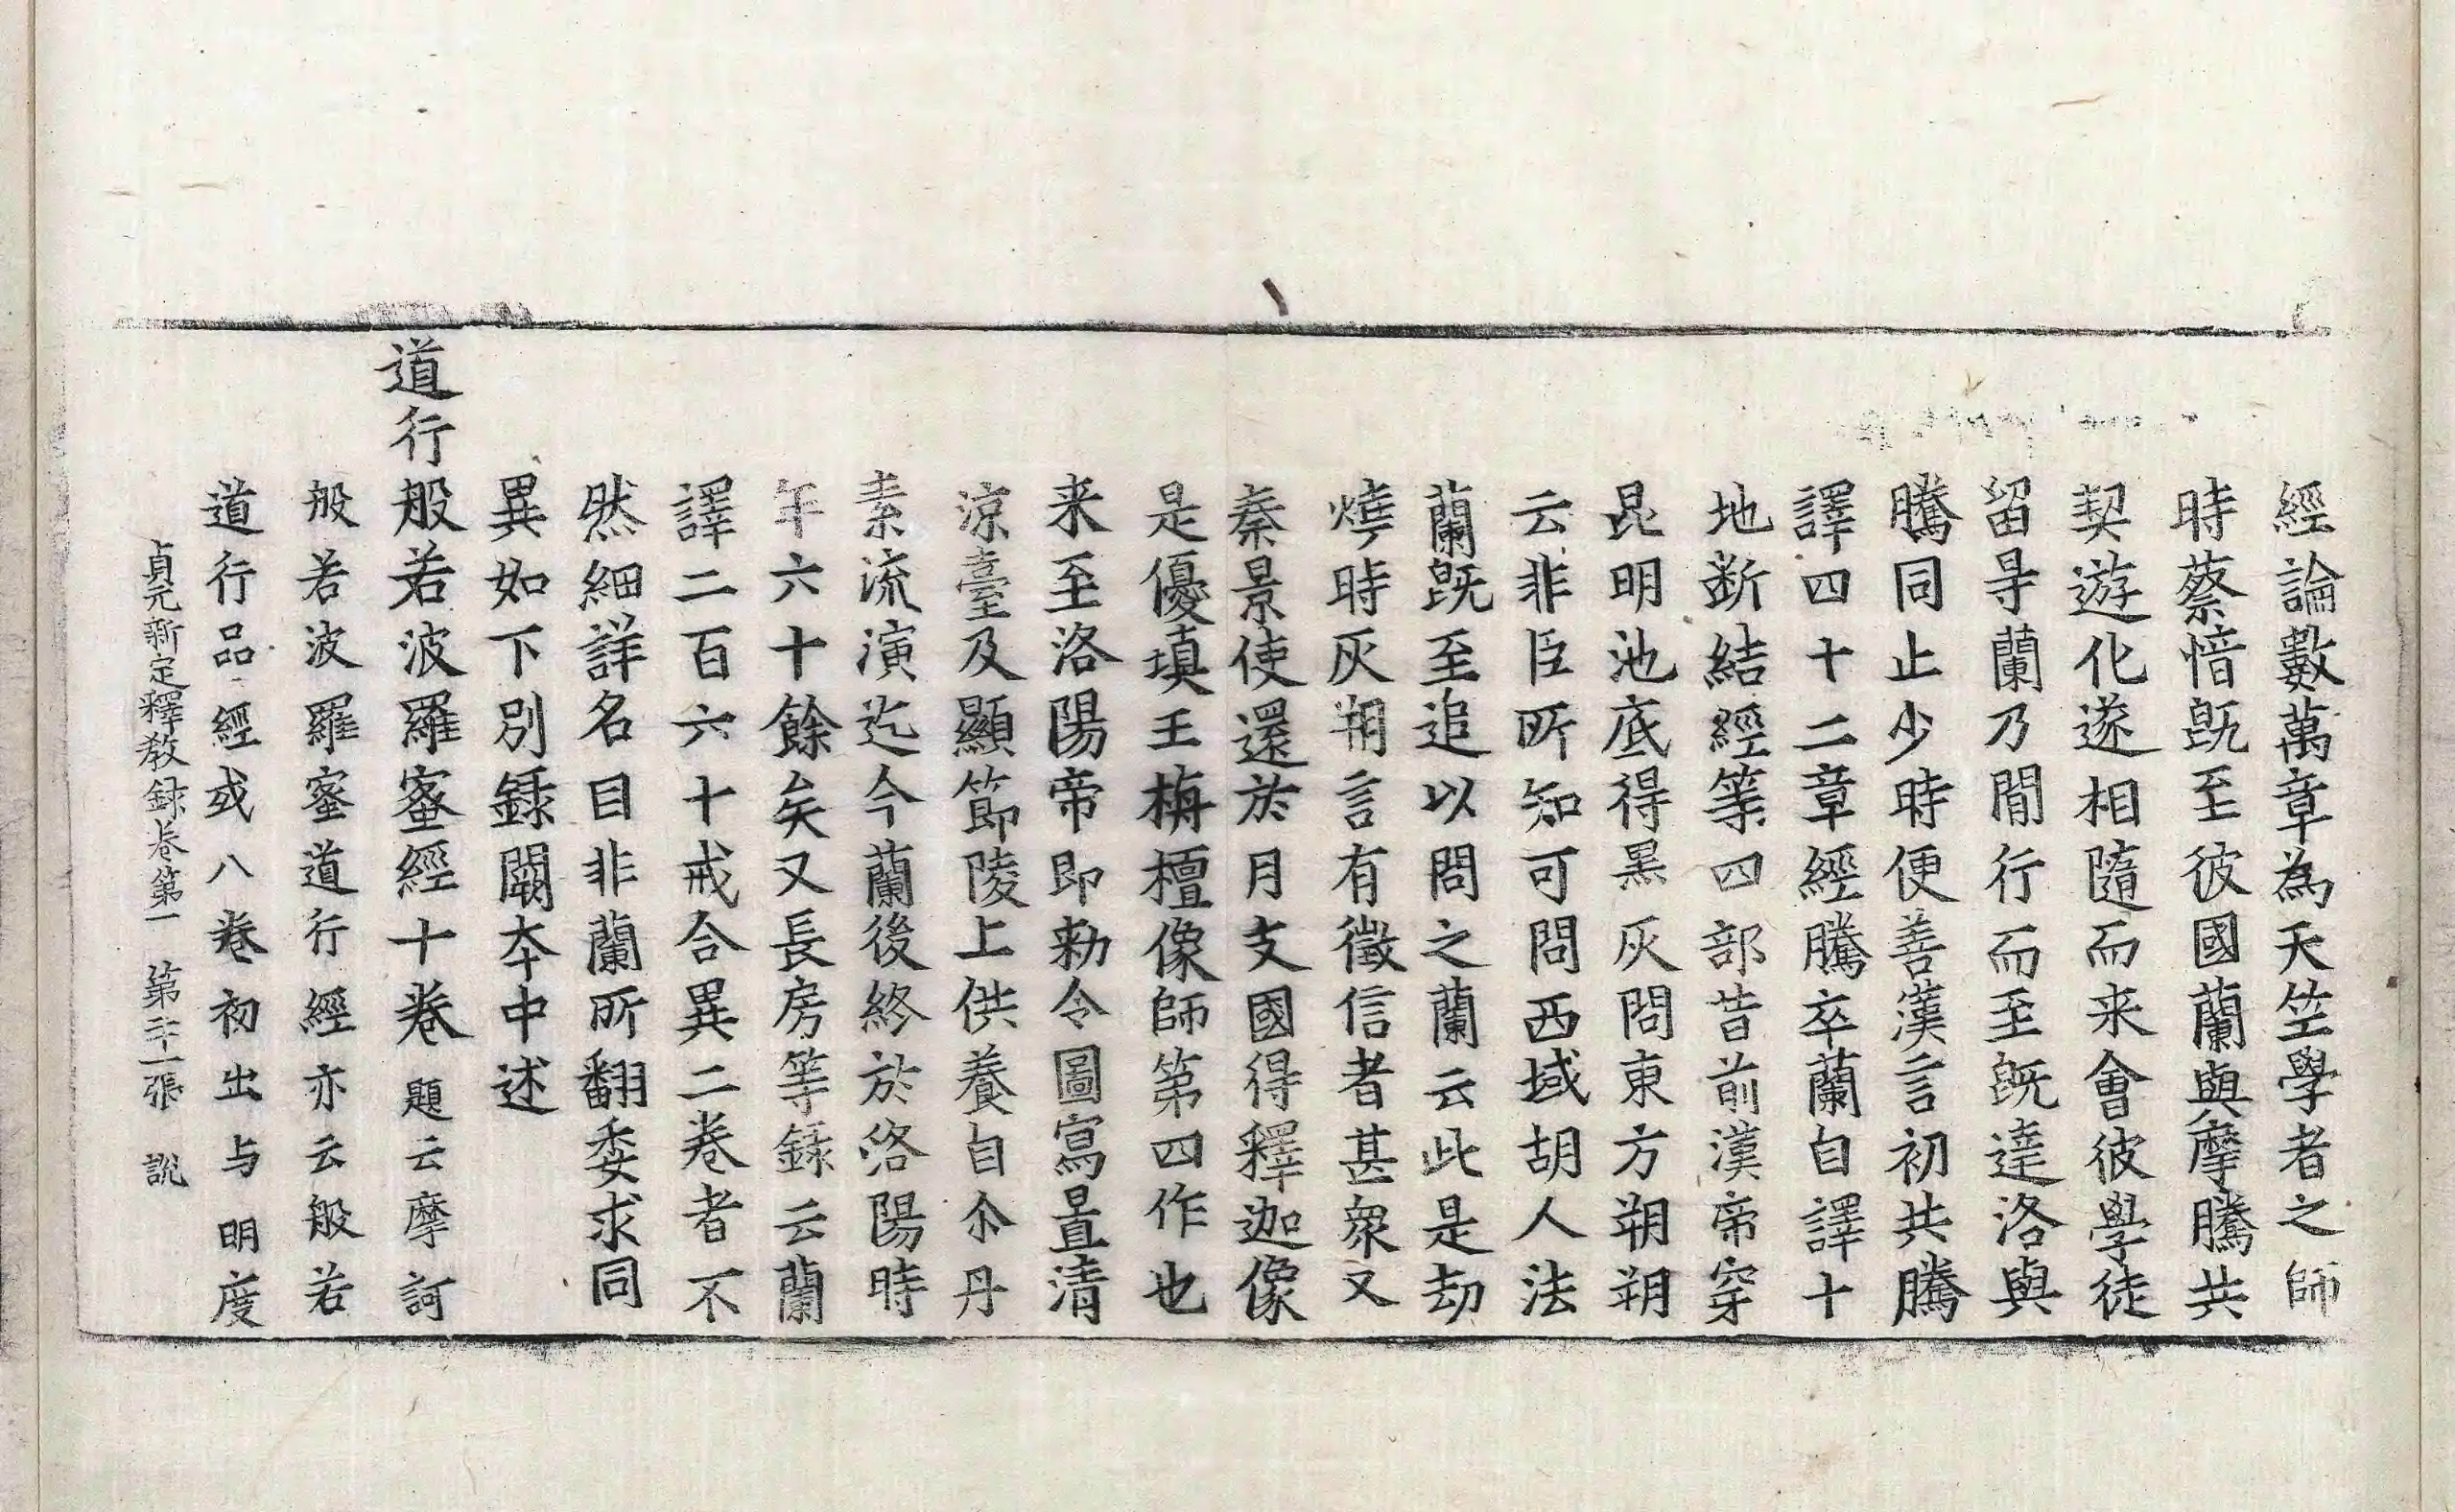 經論數萬章為天竺學者之師
時蔡愔既至彼國蘭與摩騰共
契遊化遂相隨而来會彼學徒
留㝵蘭乃間行而至既達洛與
騰同止少時便善漢言初共騰
譯四十二章經騰卒蘭自譯十
地斷結經等四部昔前漢帝穿
昆明池底得黑灰問東方朔朔
云非臣所知可問西域胡人法
蘭既至追以問之蘭云此是劫
燒時灰朔言有徵信者甚衆又
秦景使還於月支國得釋迦像
是優填王栴檀像師第四作也
来至洛陽帝即勅令圖寫置清
涼臺及顯節陵上供養自尒丹
素流演迄今蘭後終於洛陽時
年六十餘矣又長房等錄云蘭
譯二百六十戒合異二卷者不
然細詳名目非蘭所翻委求同
異如下別録闕本中述
道行般若波羅蜜經十卷 題云摩訶
般若波羅蜜道行經亦云般若
道行品經或八卷初出与明度
貞元新定釋教録卷第一 第二十一張 說